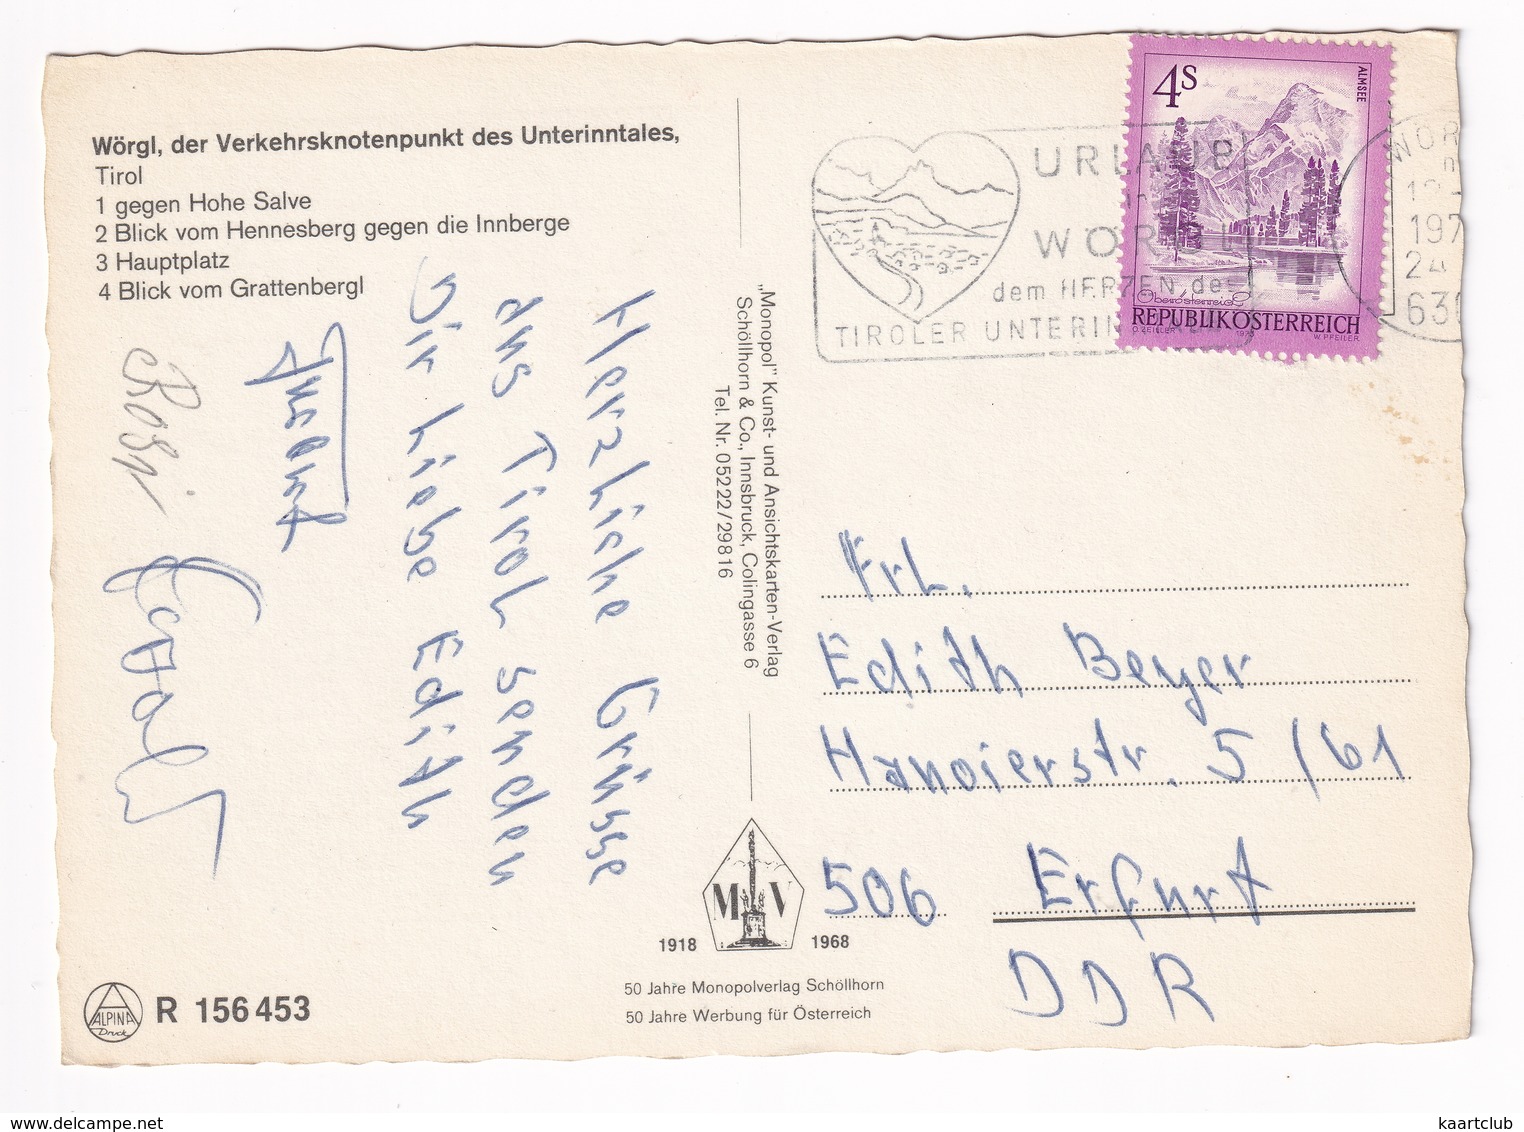 Wörgl, der Verkehrsknotenpunkt des Unterinntales,
Tirol
1 gegen Hohe Salve
2 Blick vom Hennesberg gegen die Innberge
3 Hauptplatz
4 Blick vom Grattenbergl
Herzliche Grüsse
aus Tirol senden
Dir Liebe Edith
Rosi
Ewald
"Monopol" Kunst- und Ansichtskarten-Verlag
Schöllhorn & Co., Innsbruck, Colingasse 6
Tel. Nr. 05222/29816
4S
ALMSEE
Oberösterreich
REPUBLIK ÖSTERREICH
O. ZEILLER
W. PFEILER
URLAUB
in
WÖRGL
dem HERZEN des
TIROLER UNTERIN
WÖR
197
24
630
Frl.
Edith Beyer
Hanoierstr. 5/61
506 Erfurt
DDR
M V
1918 1968
50 Jahre Monopolverlag Schöllhorn
50 Jahre Werbung für Österreich
ALPINA
Druck
R 156 453
kaartclub